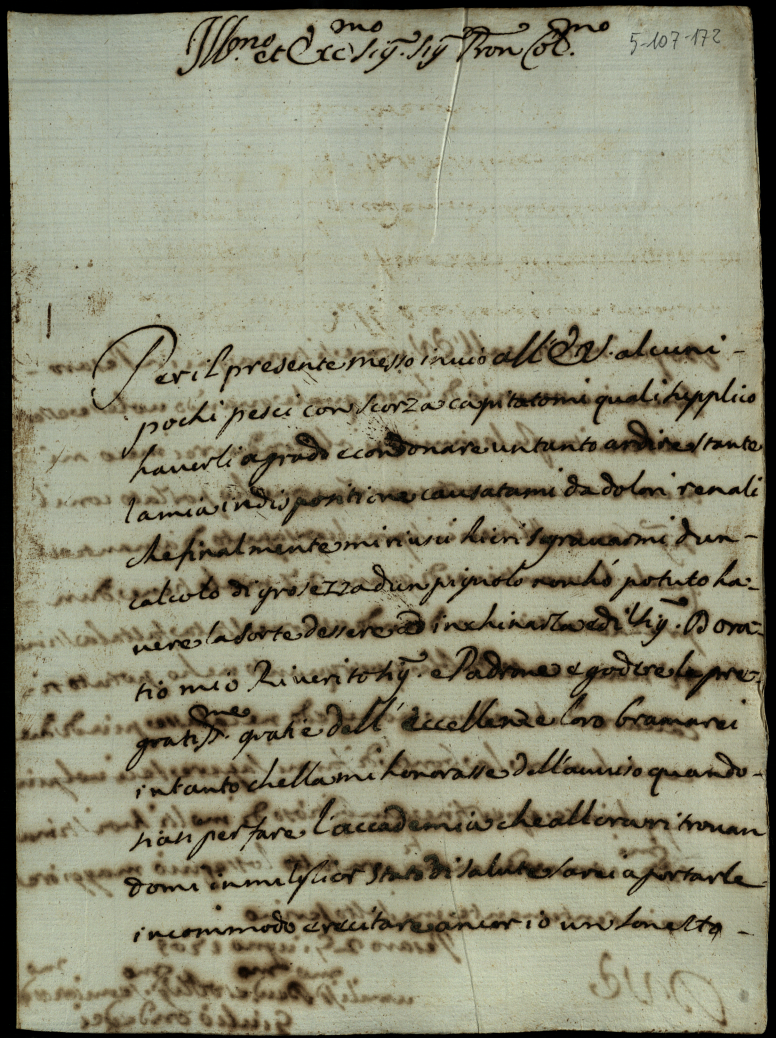 Ill.mo et Ecc.mo Sig.r Sig.r Pron Col.mo
5-107-172
Per il presente messo invio all'E.V. alcuni-
pochi pesci con scorza capitatomi quali supplico
haverli a grado e condonare un tanto ardire stante
la mia indispositione causatami da dolori renali
che finalmente mi riuscì hieri sgravarmi d un-
calcolo di grosezza d un pignolo non hò potuto ha-
vere la sorte dessere ad inchinarla ed il Sig.r Dora-
tio mio Riverito Sig.r e Padrone e godere le pre-
gratiss.me gratie dell' eccellenze loro bramarei
intanto chella mi honorasse dell'aviso quando-
sian per fare l'accademia che allora ritrovan
domi in miglior stato di salute sarei a portarle
incommodo e recitare ancor io un sonetto-